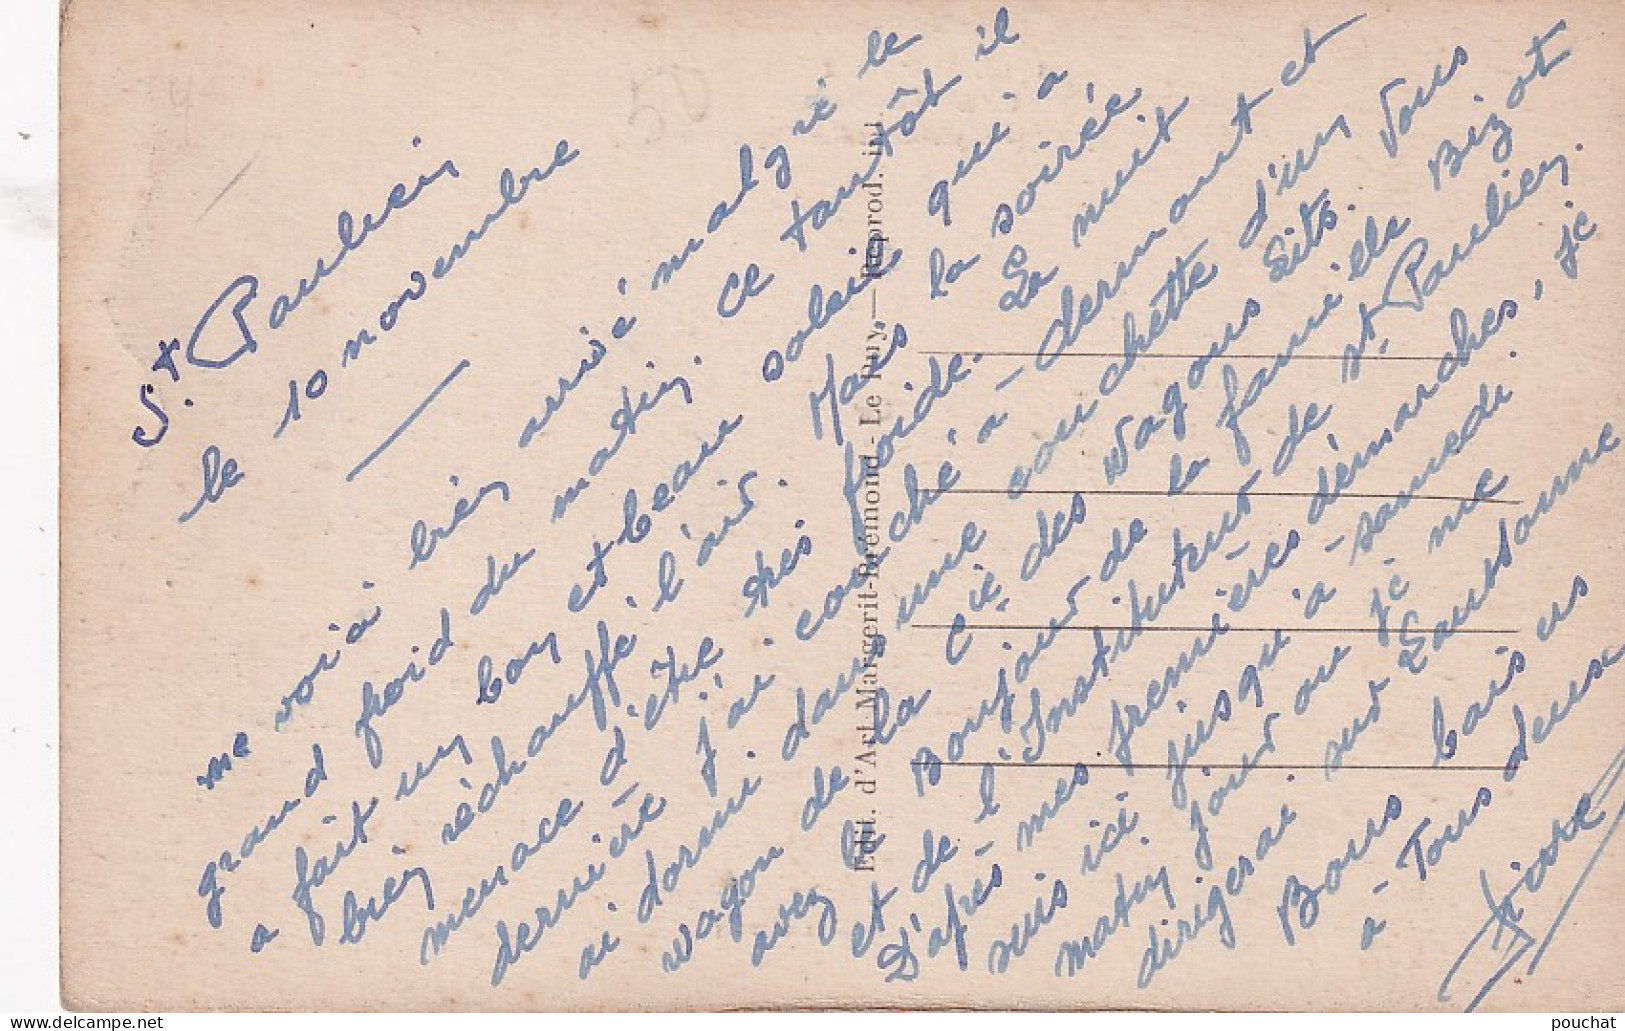 St Paulien
le 10 novembre
me voici bien arrivé malgré le
grand froid du matin. Ce tantôt il
a fait un bon et beau soleil qui a
bien réchauffé l'air. Mais la soirée
menace d'être très froide. La nuit
dernière j'ai couché à-dermont et
ai dormi dans une couchette d'un
wagon de la Cie des Wagons Lits. Vous
avez le Bonjour de la famille Bizot
et de l'Instituteur de St Paulien.
D'après mes premières démarches, je
suis ici jusqu'à samedi.
matin jour ou je me
dirigerai sur Eautonne
Bons baisers
à Tous deux
Pierre
Edit. d'Art Margerit-Brémond - Le Puy. — Reprod. int.
50
pouchat